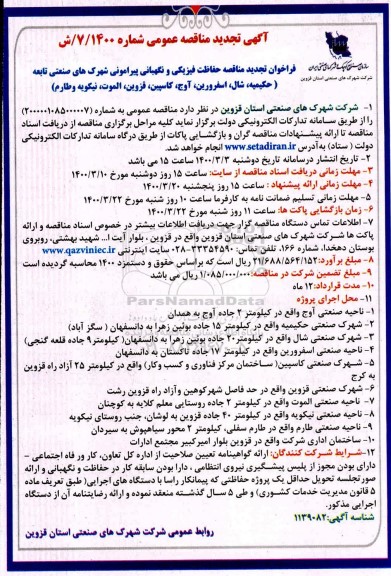 آگهی تجدید مناقصه عمومی شماره ۷/۱۴۰۰/ش
شرکت شهرک های صنعتی استان قزوین
فراخوان تجدید مناقصه حفاظت فیزیکی و نگهبانی پیرامونی شهرک های صنعتی تابعه
( حکیمیه، شال، اسفرورین، آوج، کاسپین، قزوین، الموت، نیکویه وطارم)
۱- شرکت شهرک های صنعتی استان قزوین در نظر دارد مناقصه عمومی به شماره (۲۰۰۰۰۰۱۰۸۵۰۰۰۰۰۷)
را از طریق سامانه تدارکات الکترونیکی دولت برگزار نماید کلیه مراحل برگزاری مناقصه از دریافت اسناد
مناقصه تا ارائه پیشنهادات مناقصه گران و بازگشایی پاکات از طریق درگاه سامانه تدارکات الکترونیکی
دولت ( ستاد) به آدرس www.setadiran.ir انجام خواهد شد.
۲- تاریخ انتشار درسامانه تاریخ دوشنبه ۱۴۰۰/۳/۳ ساعت ۱۵ می باشد
۳- مهلت زمانی دریافت اسناد مناقصه از سایت: ساعت ۱۵ روز دوشنبه مورخ ۱۴۰۰/۳/۱۰
۴- مهلت زمانی ارائه پیشنهاد : ساعت ۱۵ روز پنجشنبه ۱۴۰۰/۳/۲۰
۵- مهلت زمانی تسلیم ضمانت نامه به کارفرما ساعت ۱۰ روز شنبه مورخ ۱۴۰۰/۳/۲۲
۶- زمان بازگشایی پاکت ها: ساعت ۱۱ روز شنبه مورخ ۱۴۰۰/۳/۲۲
۷- اطلاعات تماس دستگاه مناقصه گزار جهت دریافت اطلاعات بیشتر در خصوص اسناد مناقصه و ارائه
پاکت ها شرکت شهرک های صنعتی استان قزوین واقع در قزوین ، بلوار آیت ا... شهید بهشتی، روبروی
بوستان دهخدا، شماره ۱۶۶، تلفن تماس: ۳۳۳۵۴۵۹۰-۰۲۸ سایت اینترنتی www.qazviniec.ir
۸- مبلغ برآورد: ۲۱/۶۸۸/۵۶۴/۱۵۲ ریال است که براساس حقوق و دستمزد ۱۴۰۰ محاسبه گردیده است
۹- مبلغ تضمین شرکت در مناقصه: ۱/۰۸۵/۰۰۰/۰۰۰ ریال می باشد
۱۰- مدت قرارداد: ۱۲ ماه
۱۱- محل اجرای پروژه
۱- ناحیه صنعتی آوج واقع در کیلومتر ۲ جاده آوج به همدان
۲- شهرک صنعتی حکیمیه واقع در کیلومتر ۱۵ جاده بوئین زهرا به دانسفهان ( سگز آباد)
۳- شهرک صنعتی شال واقع در کیلومتر ۲۰ جاده بوئین زهرا به دانسفهان( کیلومتر ۹ جاده قلعه گنجی)
۴- ناحیه صنعتی اسفرورین واقع در کیلومتر ۱۷ جاده تاکستان به دانسفهان
۵- شهرک صنعتی کاسپین( ساختمان مرکز فناوری و کسب وکار) واقع در کیلومتر ۲۵ آزاد راه قزوین
به کرج
۶- شهرک صنعتی قزوین واقع در حد فاصل شهرکوهین وآزاد راه قزوین رشت
۷- ناحیه صنعتی الموت واقع در کیلومتر ۲ جاده روستایی معلم کلایه به کوچنان
۸- ناحیه صنعتی نیکویه واقع در کیلومتر ۴۰ جاده قزوین به لوشان، جنب روستای نیکویه
۹- ناحیه صنعتی طارم واقع در طارم سفلی، کیلومتر ۲ محور سیاهپوش به سیردان
۱۰- ساختمان اداری شرکت واقع در قزوین بلوار امیرکبیر مجتمع ادارات
۱۲- شرایط شرکت کنندگان: ارائه گواهینامه تعیین صلاحیت از اداره کل تعاون، کار و رفاه اجتماعی –
دارای بودن مجوز از پلیس پیشگیری نیروی انتظامی ، دارا بودن سابقه کار در حفاظت و نگهبانی و ارائه
صورتجلسه تحویل حداقل یک پروژه حفاظتی که پیمانکار راسا با دستگاه های اجرایی( طبق تعریف ماده
۵ قانون مدیریت خدمات کشوری) و طی ۵ سال گذشته منعقد نموده و ارائه رضایتنامه آن از دستگاه
اجرایی مذکور.
شناسه آگهی: ۱۱۳۹۰۸۲
روابط عمومی شرکت شهرک های صنعتی استان قزوین
ParsNamadData